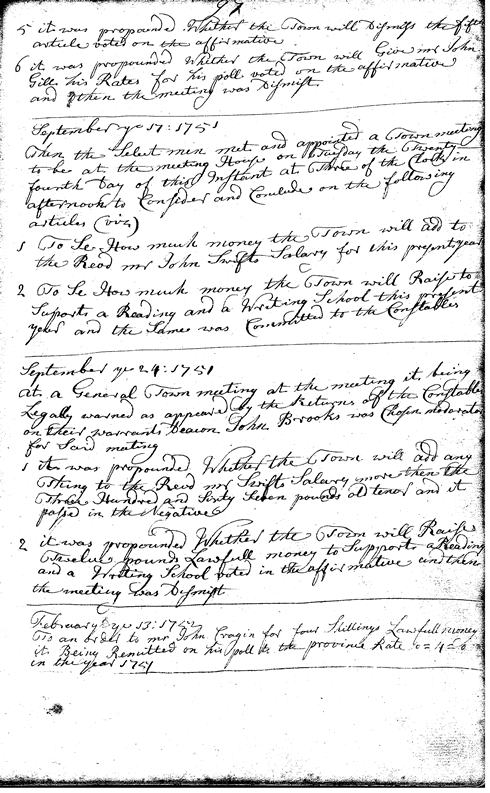 97
5 it was propounded Whether the Town will Dismiss the fift
article voted on the affirmative
6 it was propounded Whether the Town will Give mr John
Gill his Rates for his poll voted on the affirmative
and then the meeting was Dismist.
September ye 17: 1751
Then the Select men met and appointed a Town meeting
to be at the meeting House on Tuesday the Twenty
fourth Day of this Instant at Three of the Clock in
afternoon to Consider and Conclude on the following
articles (viz)
1 To Se How much money the Town will add to
the Revd mr John Swifts Salary for this present year
2 To Se How much money the Town will Raise to
Suports a Reading and a Writing School this present
year and the Same was Committed to the Constables
September ye 24: 1751
at a General Town meeting at the meeting its being
Legally warned as appeared by the Returns of the Constables
on their warrants Deacon John Brooks was Chosen moderator
for Said meeting
1 it was propounded Whether the Town will add any
Thing to the Revd mr Swifts Salary more then the
Three Hundred and Sixty Seven pounds old tenor and it
passed in the Negative
2 it was propounded Whether the Town will Raise
Twelve pounds Lawfull money to Supports a Reading
and a Writing School voted in the affirmative and then
the meeting was Dismist
February ye 13: 1752
Tis an order to mr John Cragin for four Shillings Lawfull money
it Being Remitted on his poll to the province Rate 0=4=0
in the year 1751